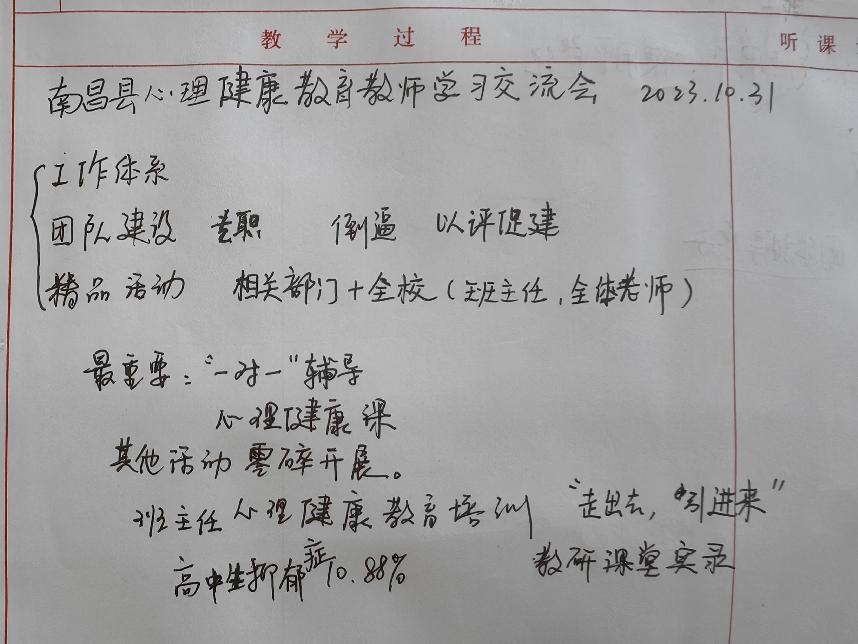 教学过程 听课
南昌县心理健康教育教师学习交流会 2023.10.31
工作体系
团队建设 专职 倒逼 以评促建
精品活动 相关部门+全校(班主任,全体老师)
最重要:“一对一”辅导
心理健康课
其他活动零碎开展。
班主任心理健康教育培训 “走出去,引进来”
高中生抑郁症10.88% 教研课堂实录